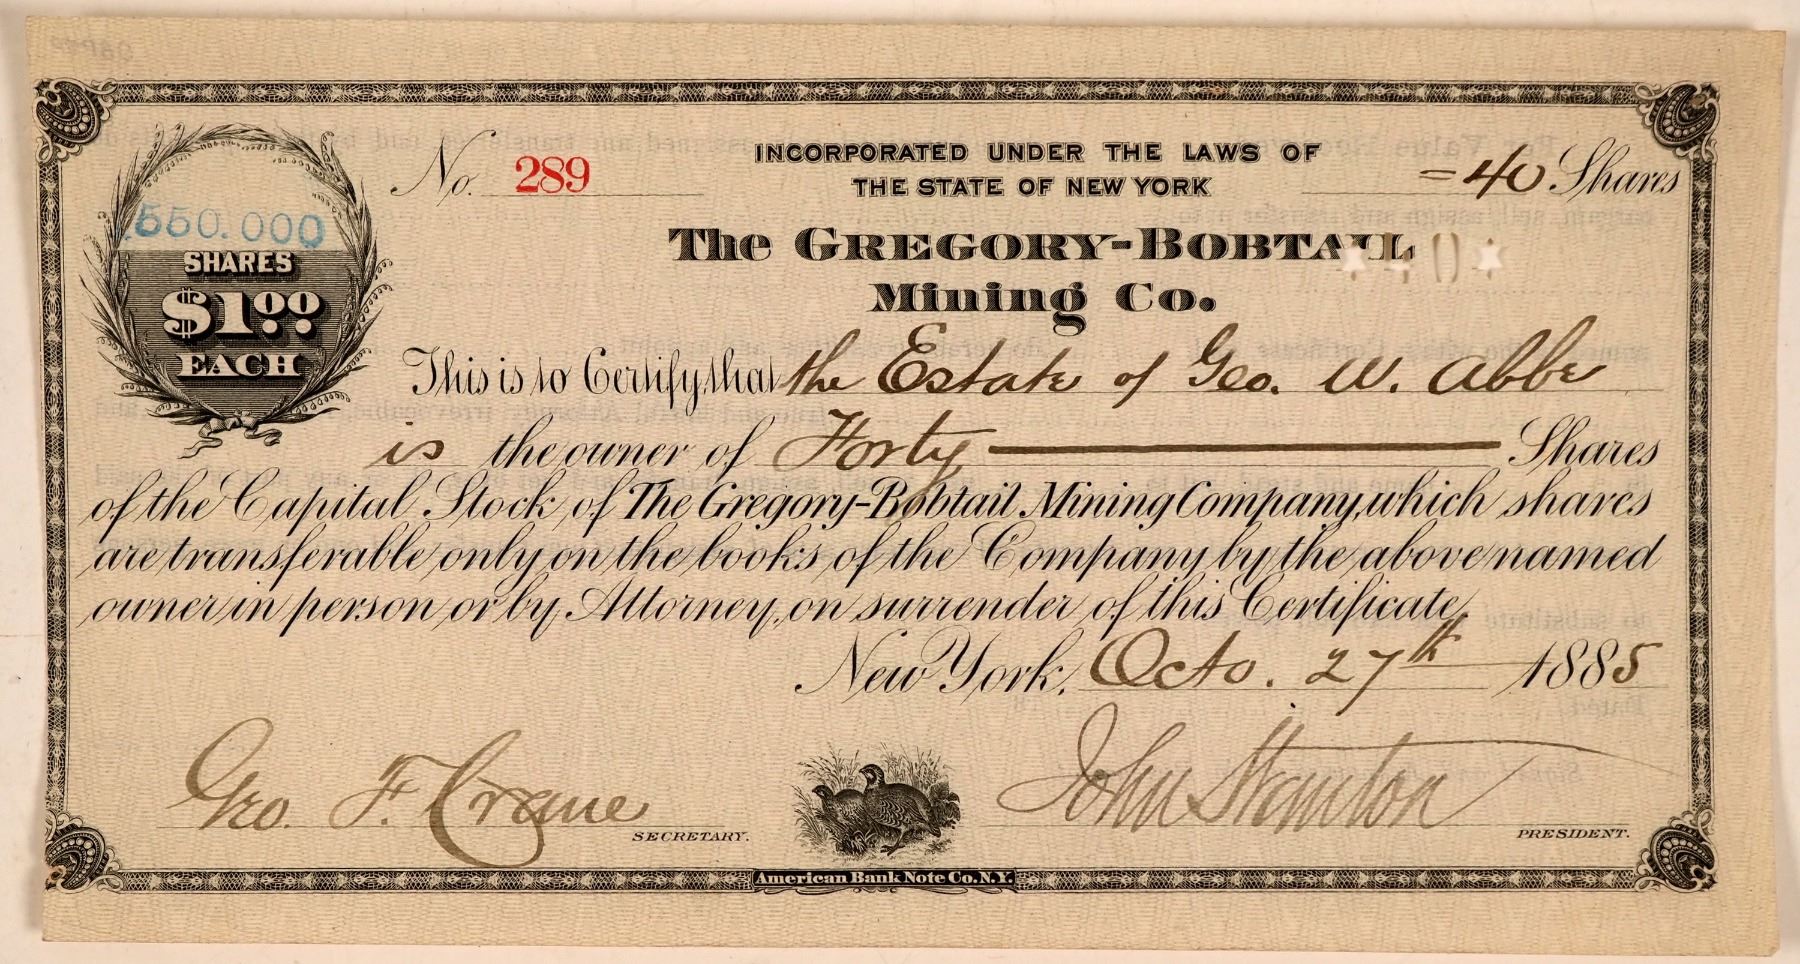 No. 289
INCORPORATED UNDER THE LAWS OF
THE STATE OF NEW YORK
=40 Shares
550.000
SHARES
$1.00
EACH
The GREGORY-BOBTAIL
*40*
Mining Co.
This is to Certify that the Estate of Geo. W. Abbe
is the owner of Forty Shares
of the Capital Stock of The Gregory-Bobtail Mining Company, which shares
are transferable only on the books of the Company by the above named
owner in person or by Attorney, on surrender of this Certificate.
New York, Octo. 27th 1885
Geo. F. Crane
SECRETARY.
John Stanton
PRESIDENT.
American Bank Note Co. N.Y.